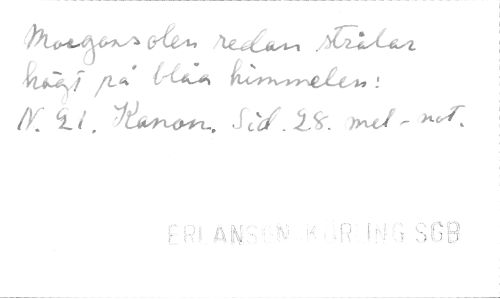 Morgonsolen redan strålar
högt på blåa himmelen:
N. 21. Kanon. Sid. 28. mel-not.
ERLANSON KÖRLING SGB